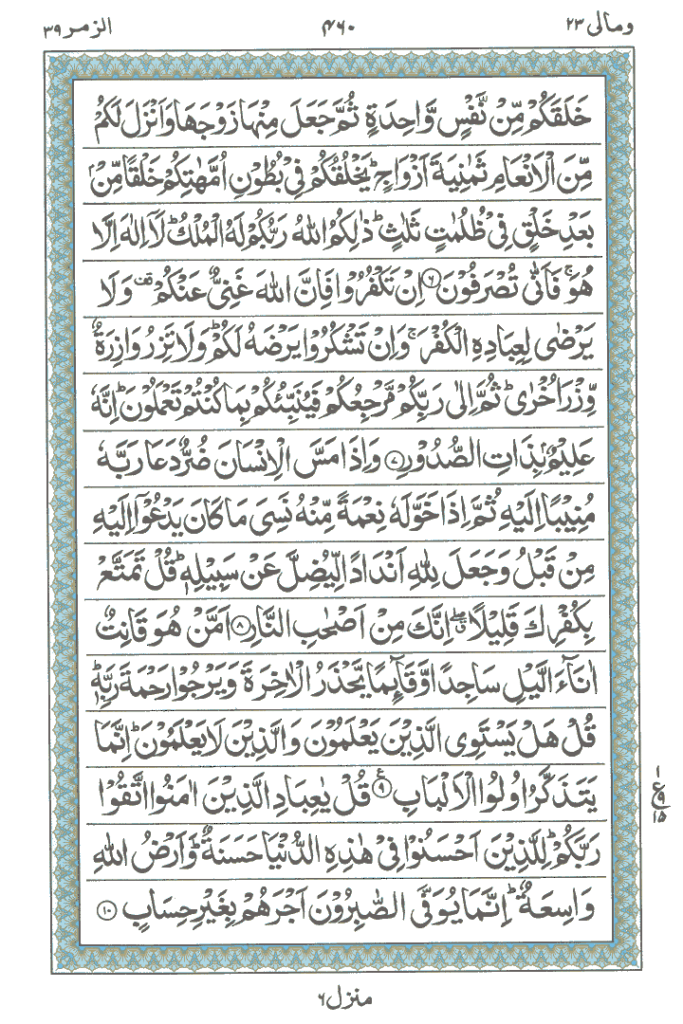 ومالی ٢٣
۴۶۰
الزمر ٣٩
خَلَقَكُمْ مِّنْ نَّفْسٍ وَّاحِدَةٍ ثُمَّ جَعَلَ مِنْهَا زَوْجَهَا وَاَنْزَلَ لَكُمْ
مِّنَ الْاَنْعَامِ ثَمٰنِيَةَ اَزْوَاجٍ ؕ يَخْلُقُكُمْ فِىْ بُطُوْنِ اُمَّهٰتِكُمْ خَلْقًا مِّنْۢ
بَعْدِ خَلْقٍ فِىْ ظُلُمٰتٍ ثَلٰثٍ ؕ ذٰلِكُمُ اللّٰهُ رَبُّكُمْ لَهُ الْمُلْكُ ؕ لَاۤ اِلٰهَ اِلَّا
هُوَ ۚ فَاَنّٰى تُصْرَفُوْنَ ﴿٦﴾ اِنْ تَكْفُرُوْا فَاِنَّ اللّٰهَ غَنِىٌّ عَنْكُمْ ۫ وَلَا
يَرْضٰى لِعِبَادِهِ الْكُفْرَ ۚ وَاِنْ تَشْكُرُوْا يَرْضَهُ لَكُمْ ؕ وَلَا تَزِرُ وَازِرَةٌ
وِّزْرَ اُخْرٰى ؕ ثُمَّ اِلٰى رَبِّكُمْ مَّرْجِعُكُمْ فَيُنَبِّئُكُمْ بِمَا كُنْتُمْ تَعْمَلُوْنَ ؕ اِنَّهٗ
عَلِيْمٌۢ بِذَاتِ الصُّدُوْرِ ﴿٧﴾ وَاِذَا مَسَّ الْاِنْسَانَ ضُرٌّ دَعَا رَبَّهٗ
مُنِيْبًا اِلَيْهِ ثُمَّ اِذَا خَوَّلَهٗ نِعْمَةً مِّنْهُ نَسِىَ مَا كَانَ يَدْعُوْۤا اِلَيْهِ
مِنْ قَبْلُ وَجَعَلَ لِلّٰهِ اَنْدَادًا لِّيُضِلَّ عَنْ سَبِيْلِهٖ ؕ قُلْ تَمَتَّعْ
بِكُفْرِكَ قَلِيْلًا ۖ اِنَّكَ مِنْ اَصْحٰبِ النَّارِ ﴿٨﴾ اَمَّنْ هُوَ قَانِتٌ
اٰنَآءَ الَّيْلِ سَاجِدًا وَّقَآئِمًا يَّحْذَرُ الْاٰخِرَةَ وَيَرْجُوْا رَحْمَةَ رَبِّهٖ ؕ
قُلْ هَلْ يَسْتَوِى الَّذِيْنَ يَعْلَمُوْنَ وَالَّذِيْنَ لَا يَعْلَمُوْنَ ؕ اِنَّمَا
يَتَذَكَّرُ اُولُوا الْاَلْبَابِ ﴿٩﴾ قُلْ يٰعِبَادِ الَّذِيْنَ اٰمَنُوا اتَّقُوْا
رَبَّكُمْ ؕ لِلَّذِيْنَ اَحْسَنُوْا فِىْ هٰذِهِ الدُّنْيَا حَسَنَةٌ ؕ وَاَرْضُ اللّٰهِ
وَاسِعَةٌ ؕ اِنَّمَا يُوَفَّى الصّٰبِرُوْنَ اَجْرَهُمْ بِغَيْرِ حِسَابٍ ﴿١٠﴾
١
ع ٩
١٥
منزل ٦